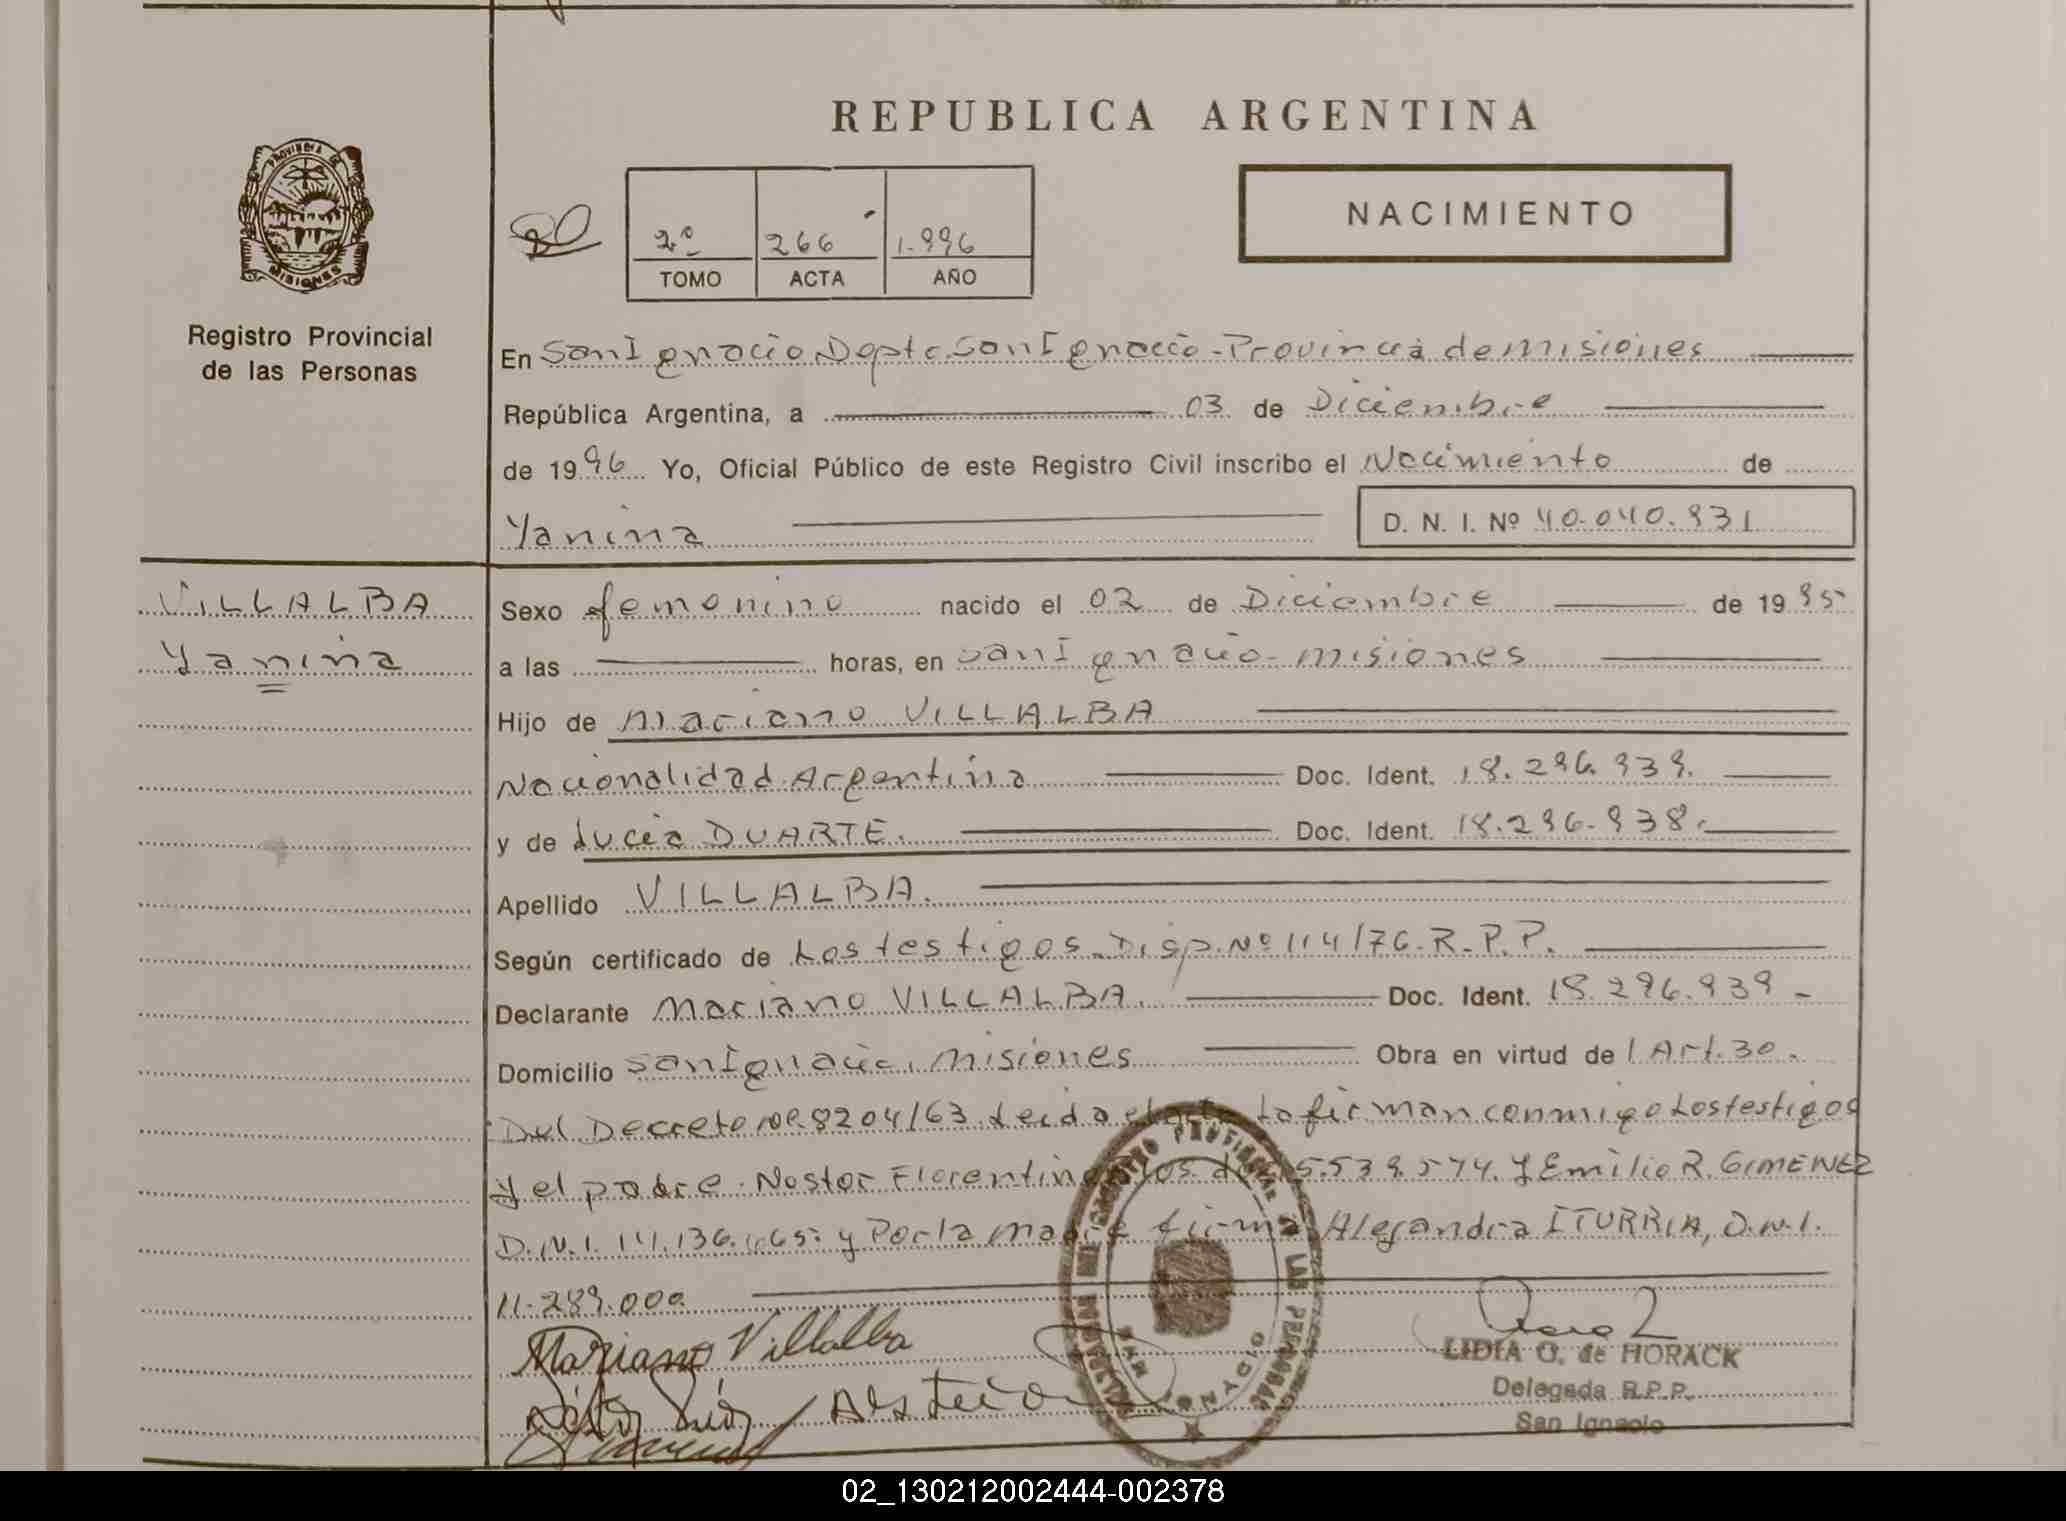 REPUBLICA ARGENTINA
PROVINCIA DE
MISIONES
Registro Provincial
de las Personas
2º 266 1.996
TOMO ACTA AÑO
NACIMIENTO
En San Ignacio Dpto. San Ignacio - Provincia de Misiones
República Argentina, a 03 de Diciembre
de 1996 Yo, Oficial Público de este Registro Civil inscribo el Nacimiento de
Yanina D. N. I. Nº 40.040.931
VILLALBA
Yanina
Sexo femenino nacido el 02 de Diciembre de 1995
a las horas, en San Ignacio - Misiones
Hijo de Mariano VILLALBA
Nacionalidad Argentina Doc. Ident. 18.296.939.
y de Lucia DUARTE. Doc. Ident. 18.296.938.
Apellido VILLALBA.
Según certificado de Los testigos. Disp. Nº 114/76-R.P.P.
Declarante Mariano VILLALBA. Doc. Ident. 18.296.939 -
Domicilio San Ignacio, Misiones Obra en virtud del Art. 30.
Del Decreto Nº 8204/63. Leida el acta La firman conmigo Los testigos
y el padre. Nestor Florentino 5.539.574. y Emilio R. GIMENEZ
D.N.I. 14.136.665 y Por la madre firma Alejandra ITURRIA, D.N.I.
11.289.000
Mariano Villalba
LIDIA O. de HORACK
Delegada R.P.P.
San Ignacio
02_130212002444-002378